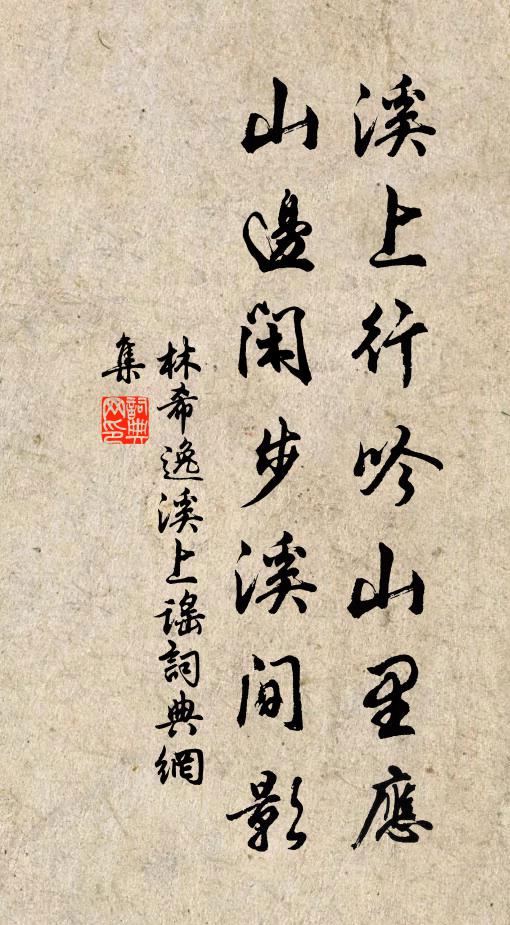 溪上行吟山里應
山邊閑步溪間影
林希逸溪上謠詞典網
集
詞典
网印